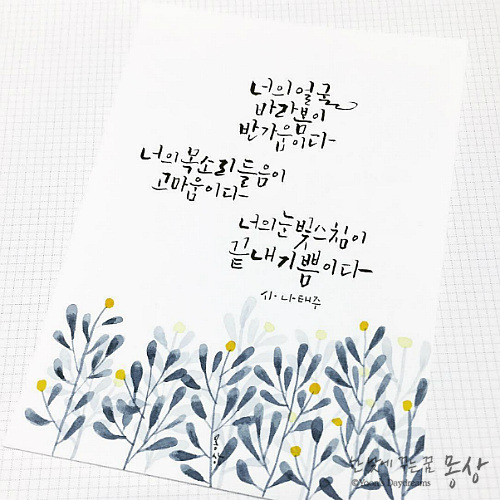 너의 얼굴
바라봄이
반가움이다
너의 목소리 들음이
고마움이다
너의 눈빛 스침이
끝내 기쁨이다
시. 나태주
몽상
한낮에 꾸는 꿈 몽상
©Yoon's Daydreams